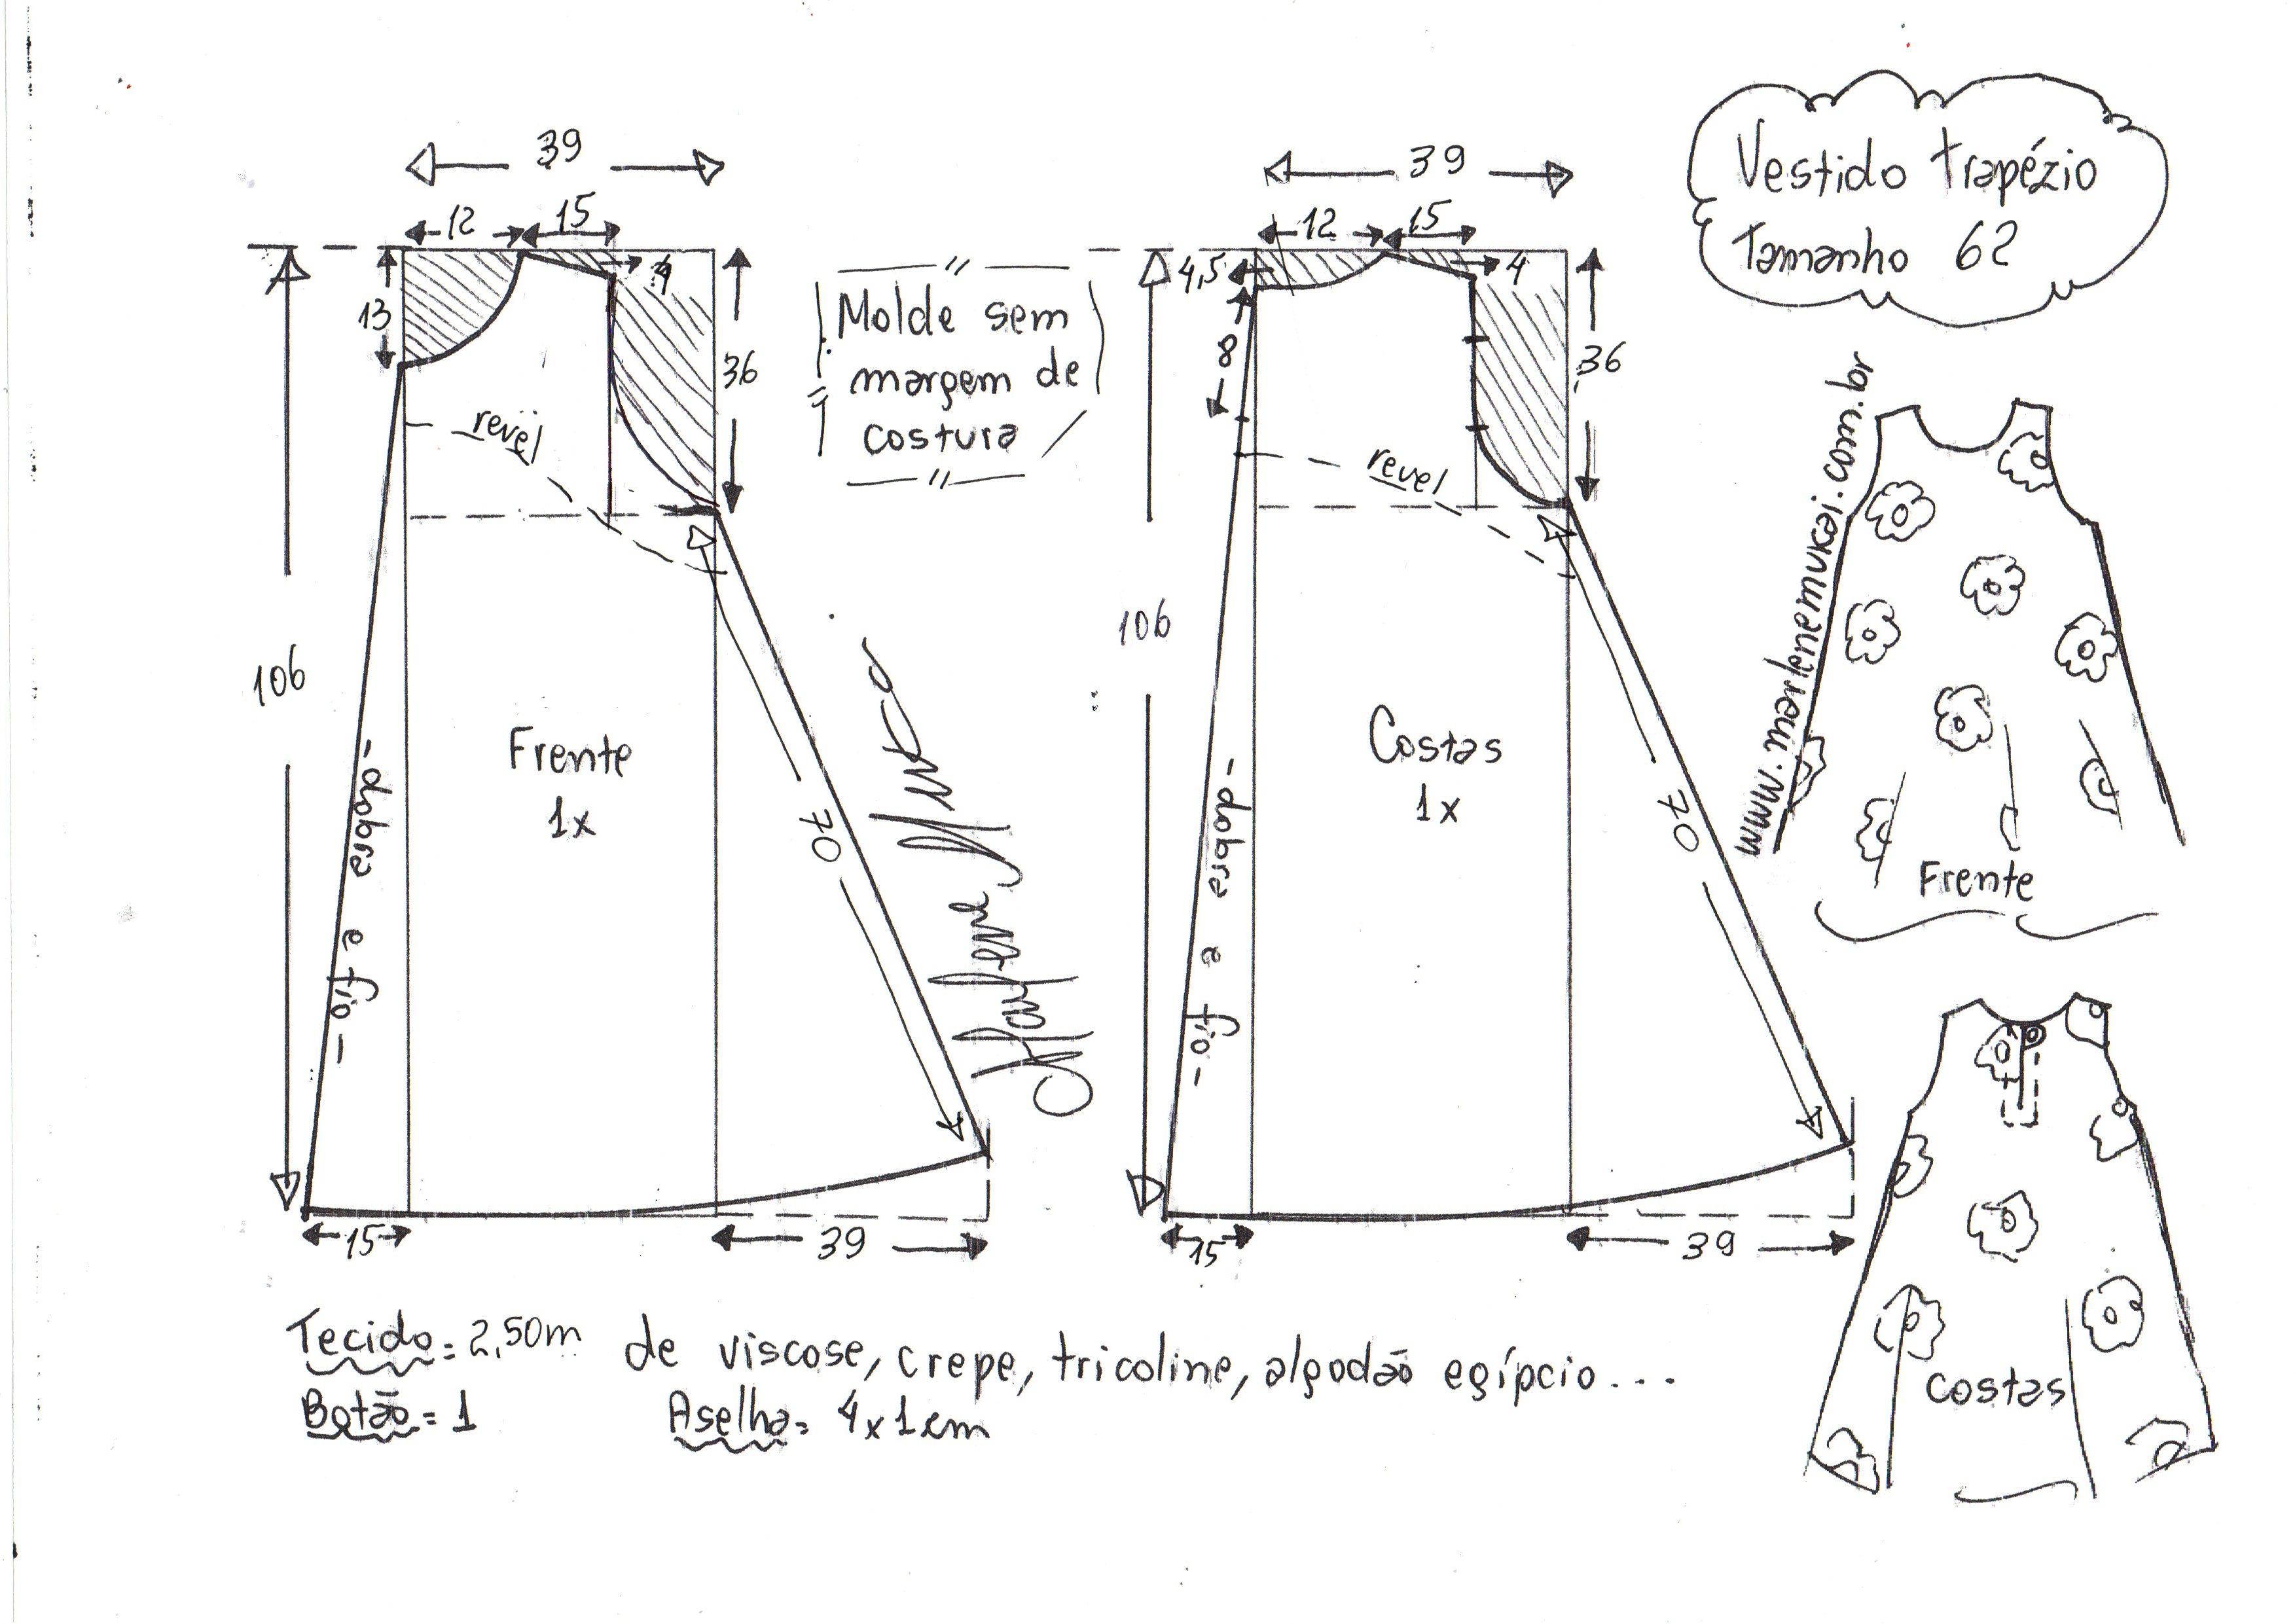 39
12
15
4
13
36
106
revel
Frente
1x
-dobra e fio-
70
15
39
Molde sem
margem de
costura
Marlene Mukai
39
12
15
4,5
4
8
36
106
revel
Costas
1x
-dobra e fio-
70
15
39
Vestido trapézio
Tamanho 62
www.marlenemukai.com.br
Frente
Costas
Tecido= 2,50m de viscose, crepe, tricoline, algodão egípcio...
Botão= 1 Aselha= 4x1cm